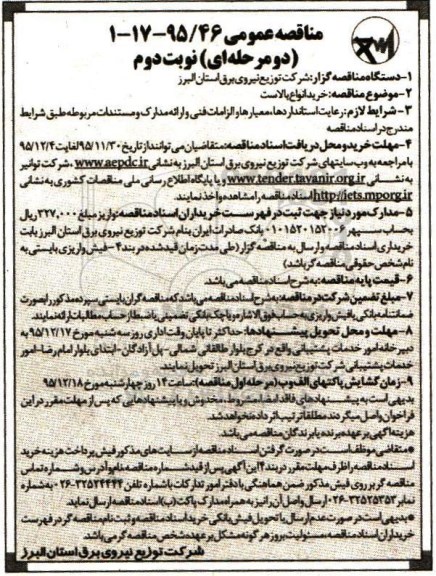 مناقصه عمومی ۹۵/۴۶-۱۷-۱
(دو مرحله ای) نوبت دوم
۱-دستگاه مناقصه گزار: شرکت توزیع نیروی برق استان البرز
۲-موضوع مناقصه: خرید انواع بالاست
۳- شرایط لازم: رعایت استانداردها، معیارها و الزامات فنی و ارائه مدارک و مستندات مربوطه طبق شرایط
مندرج در اسناد مناقصه
۴-مهلت خرید و محل دریافت اسناد مناقصه: متقاضیان می توانند از تاریخ ۹۵/۱۱/۳۰ لغایت ۹۵/۱۲/۴
با مراجعه به وب سایتهای شرکت توزیع نیروی برق استان البرز به نشانی www.aepdc.ir، شرکت توانیر
به نشانی www.tender.tavanir.org.ir و یا پایگاه اطلاع رسانی ملی مناقصات کشوری به نشانی
http://iets.mporg.ir اسناد مناقصه را مشاهده و اخذ نمایند.
۵-مدارک مورد نیاز جهت ثبت در فهرست خریداران اسناد مناقصه: واریز مبلغ ۳۲۷,۰۰۰ ریال
بحساب سپهر ۰۱۰۱۵۲۰۱۵۲۰۰۶ بانک صادرات ایران بنام شرکت توزیع نیروی برق استان البرز بابت
خریداری اسناد مناقصه و ارسال به مناقصه گزار (طی مدت زمان قید شده در بند ۴-فیش واریزی بایستی به
نام شخص حقوقی مناقصه گر باشد)
۶-قیمت پایه مناقصه: به شرح اسناد مناقصه می باشد.
۷-مبلغ تضمین شرکت در مناقصه: به شرح اسناد مناقصه می باشد که مناقصه گران بایستی سپرده مذکور را بصورت
ضمانتنامه بانکی یا فیش واریزی به حساب فوق الاشاره و یا چک بانکی تضمینی یا ضبط از حساب مطالبات ارائه نمایند.
۸-مهلت و محل تحویل پیشنهادها: حداکثر تا پایان وقت اداری روز سه شنبه مورخ ۹۵/۱۲/۱۷ به
دبیرخانه امور خدمات پشتیبانی واقع در کرج بلوار طالقانی شمالی-پل آزادگان-ابتدای بلوار امام رضا-امور
خدمات پشتیبانی شرکت توزیع نیروی برق استان البرز تحویل نمایند.
۹-زمان گشایش پاکتهای الف و ب (مرحله اول مناقصه): ساعت ۱۴ روز چهارشنبه مورخ ۹۵/۱۲/۱۸
بدیهی است به پیشنهادهای فاقد امضا، مشروط، مخدوش و یا پیشنهادهایی که پس از مهلت مقرر در این
فراخوان واصل میگردند مطلقا ترتیب اثر داده نخواهد شد.
هزینه آگهی بر عهده برنده یا برندگان مناقصه می باشد.
*متقاضی موظف است در صورت گرفتن اسناد مناقصه از سایت های مذکور فیش پرداخت هزینه خرید
اسناد مناقصه را ظرف مهلت مقرر در بند ۴ این آگهی پس از قید شماره مناقصه نام و آدرس و شماره تماس
مناقصه گر بر روی فیش مذکور ضمن هماهنگی با دفتر امور تدارکات با شماره تلفن ۳۲۵۲۴۴۴۴-۰۲۶ به شماره
نمابر ۳۲۵۲۵۳۵۳-۰۲۶ ارسال و اصل آن را نیز به همراه مدارک پاکت (ب) اسناد مناقصه ارسال نماید
*بدیهی است در صورت عدم ارسال یا تحویل فیش بانکی خرید اسناد مناقصه و ثبت نام مناقصه گر در فهرست
خریداران اسناد مناقصه مسئولیت بروز هر گونه مشکل بر عهده شخص مناقصه گر می باشد.
شرکت توزیع نیروی برق استان البرز